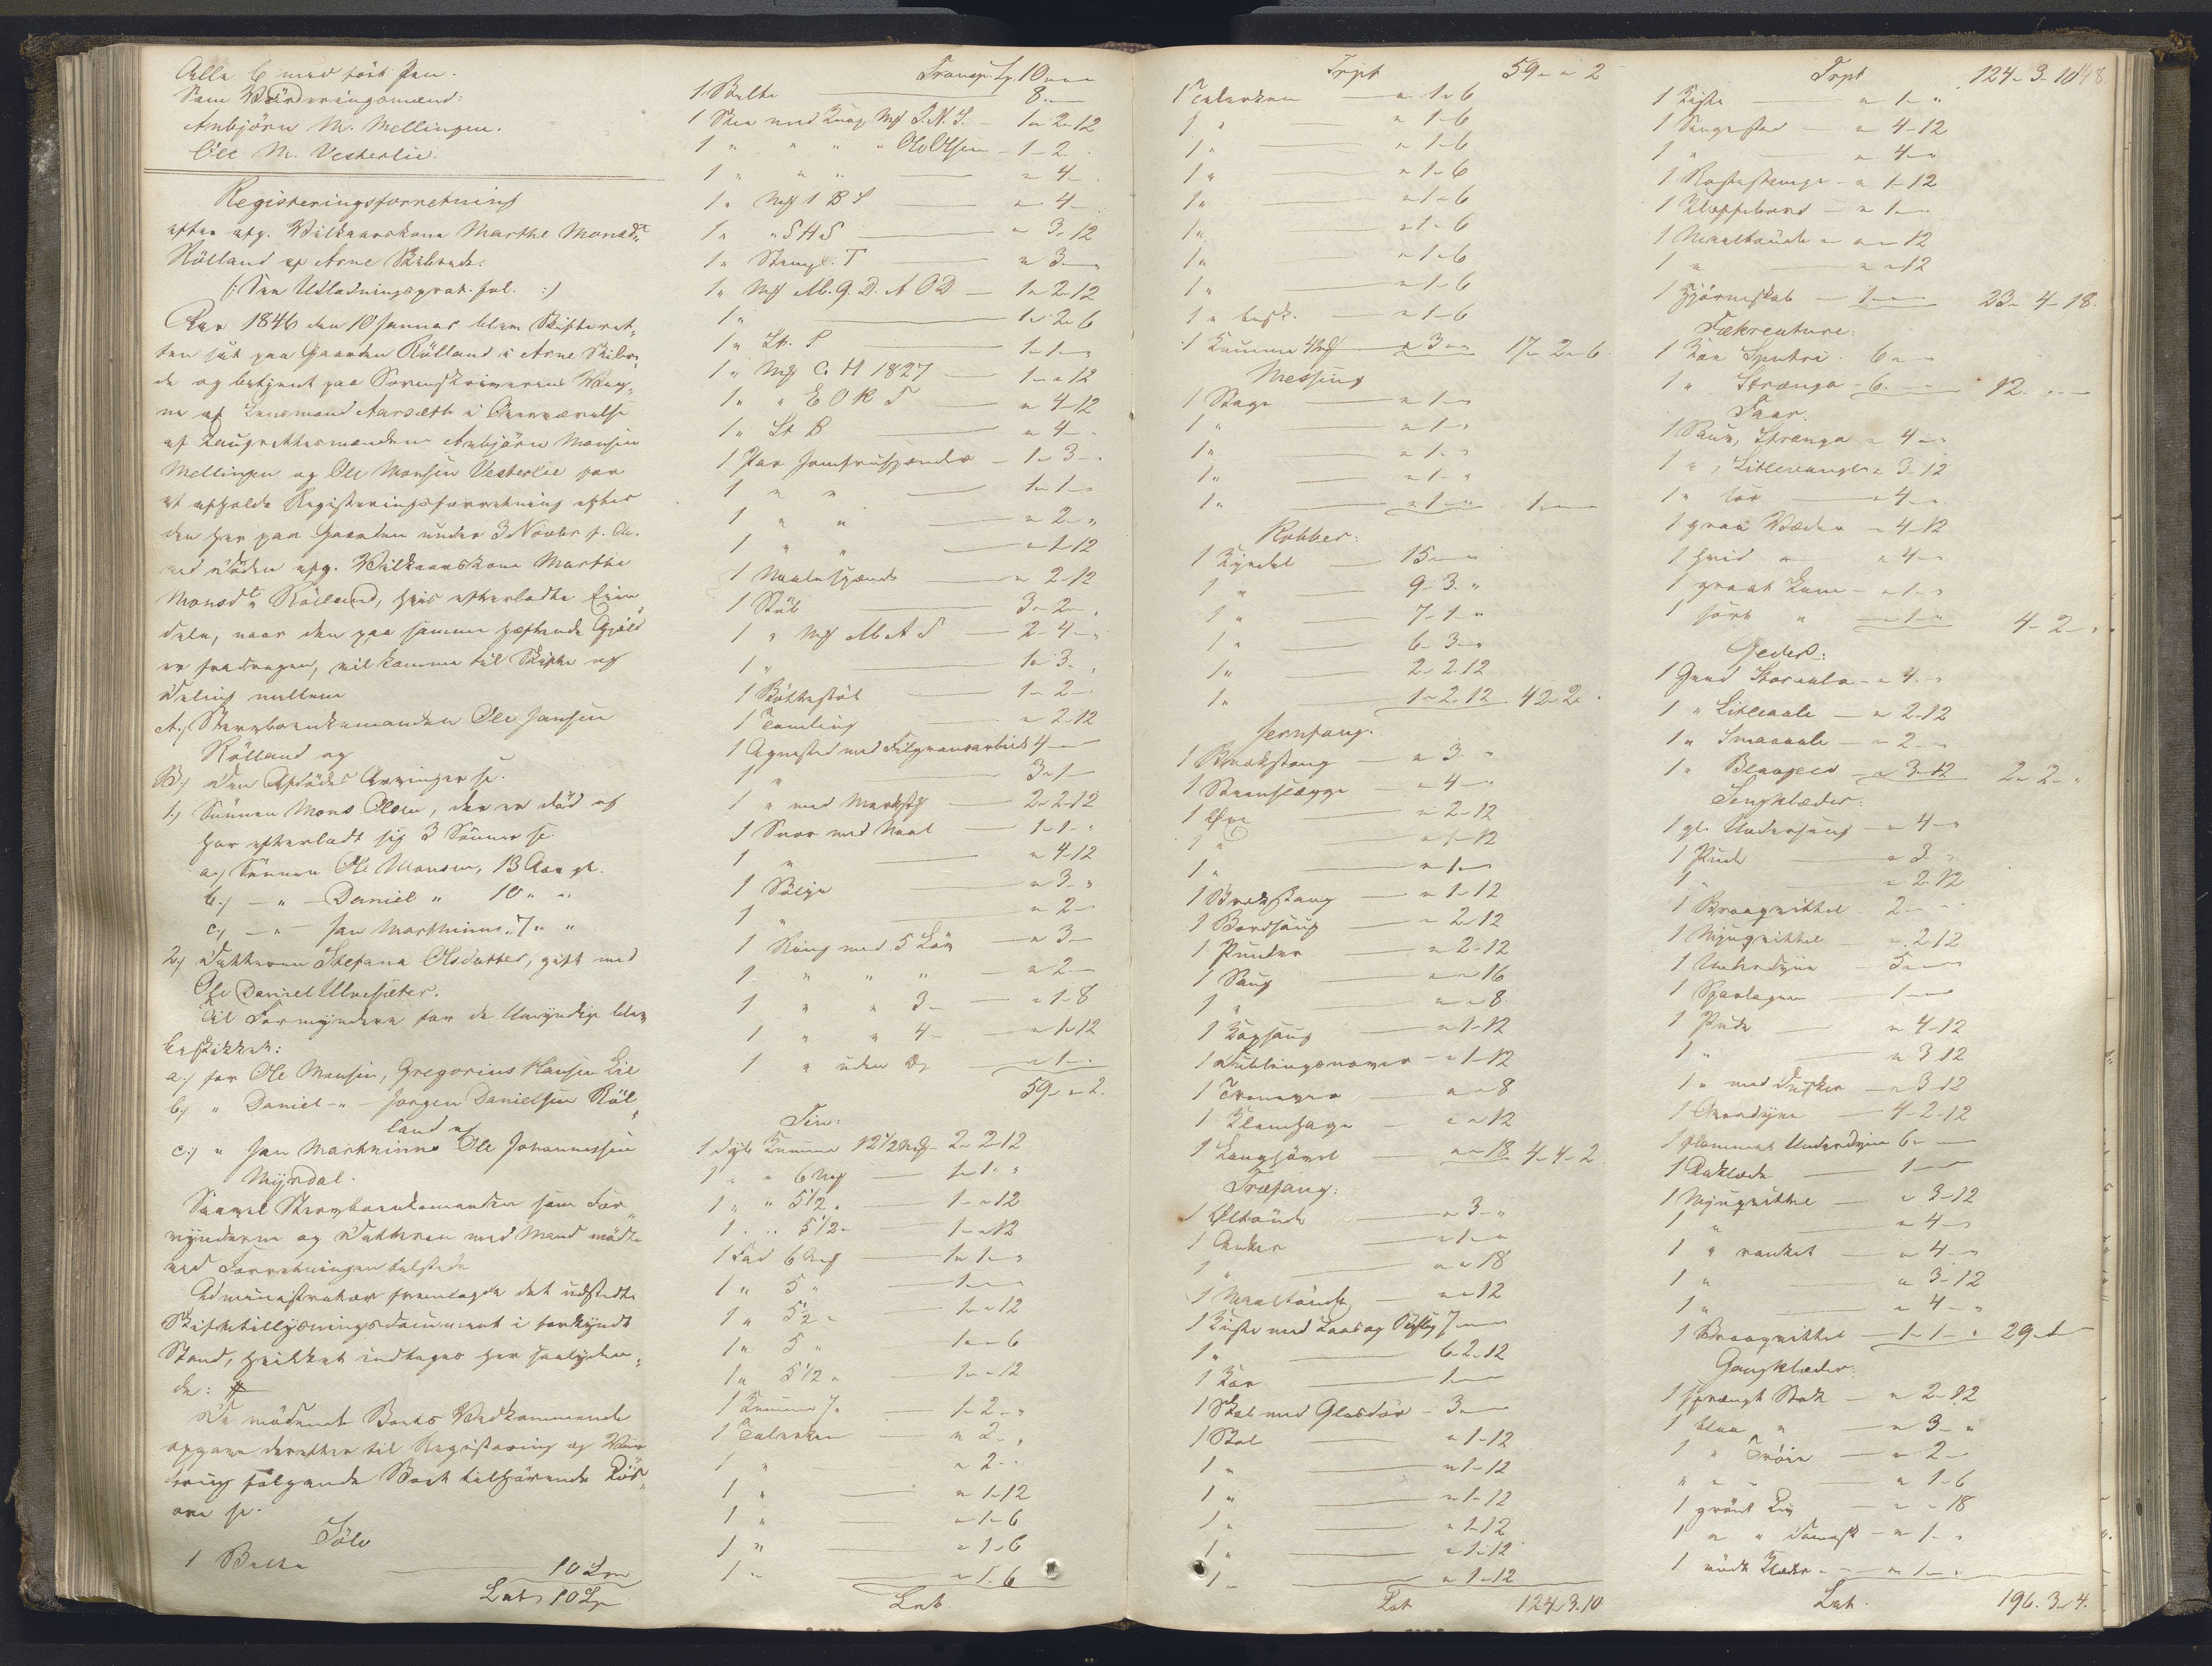 Alle 6 med ført Pen.
Som Vurderingsmænd:
Anbjörn M. Mellingen.
Ole M. Vesterlie.
Registeringsforretning
efter afg. Vilkaarskone Marthe Monsdtr
Rölland af Arne Skibrede.
(: See Udlodningsprot. fol. :)
Aar 1846 den 10 Januar blev Skifteret„
ten sat paa Gaarden Rölland i Arne Skibre„
de og betjent paa Sorenskriverens Veg„
ne af Lensmand Aarsæth i Overværelse
af Laugrettesmændene Anbjörn Monsen
Mellingen og Ole Monsen Vesterlie for
at afholde Registeringsforretning efter
den her paa Gaarden under 3 Novbr f. A.
ved Døden afg. Vilkaarskone Marthe
Monsdtr Rölland, hvis efterladte Eien„
dele, naar den paa samme hæftende Gjæld
er fradragen, vil komme til Skifte og
Deling mellem
A.) Stervboenkemanden Ole Jansen
Rölland og
B.) den Afdødes Arvinger se.
1.) Sønnen Mons Olsen, der er død og
har efterladt sig 3 Sønner se.
a.) Sønnen Ole Monsen, 13 Aar gl.
b.) — " — Daniel " 10 " "
c.) — " — Jan Marthinus " 7 " "
2.) Datteren Stefana Olsdatter, gift med
Ole Danielsen Ulvesæter.
Til Formyndere for de Umyndige blev
beskikket:
a.) for Ole Monsen, Gregorius Hansen Lie
b.) " Daniel — " — Jørgen Danielsen Röl„
land og
c.) " Jan Marthinus Ole Johannessen
Myrdal.
Saavel Stervboenkemanden som For„
mynderne og Datteren med Mand mødte
ved Forretningen tilstede
Administrator fremlagde det udstedte
Skiftetillysningsdocument i forkyndt
Stand, hvilket indtages her saalyden„
de: #
De mødende Boets Vedkommende
opgave derefter til Registering og Vur„
dering følgende Boet tilhørende Løs„
øre se.
Sölv
1 Belte — 10 Spd
Lat. 10 Sp
Transp. Sp. 10 " "
1 Belte — 8 " —
1 Skee med Knap Mk J. N. S. — 1 " 2 " 12
1 " " " " Ole Olsen — 1 - 2 -
1 " " " — " 4 -
1 " Mk 1 B S — " 4 -
1 " " S H S — " 3 " 12
1 " Stempl. T — " 3 - "
1 " Mk M. G. D. A O D — 1 " 2 " 12
1 " — 1 " 2 " 6
1 " St. P — 1 - 1 - "
1 " Mk C. H 1827 — 1 - " 12
1 " " E O R S — " 4 - 12
1 " St B — " 4 -
1 Par — 1 - 3 -
1 " " — 1 - 1 - "
1 " " — " 2 - "
1 " " — " 1 - 12
1 — " 2 - 12
1 Støb — 3 - 2 -
1 " Mk M. A S — 2 - 4 - "
1 " — 1 - 3 -
1 — 1 - 2 -
1 Tumling — " 2 - 12
1 Agnested med Filgransarbeide 4 —
1 " — 3 - 1 -
1 " med — 2 - 2 - 12
1 Snor med Naal — 1 - 1 - "
1 " — " 4 - 12
1 Sølje — " 3 - "
1 " — " 2 -
1 Ring med 5 Løv — " 3 -
1 " " " — " 2 -
1 " " 3 — " 1 - 8
1 " " 4 — " 1 - 12
1 " uden — " 1 -
59 " " 2.
Tin:
1 dyb Kumme 12 1/2 Mk — 2 - 2 - 12
1 " " 6 Mk — 1 - 1 - "
1 " " 5 1/2 " — 1 - " 12
1 " " 5 1/2 — 1 - " 12
1 Fad 6 Mk — 1 - 1 - "
1 " 5 " — 1 - " -
1 " 5 1/2 " — 1 - " 12
1 " 5 " — 1 - " 6
1 " 5 1/2 " — 1 - " 12
1 Kumme 7 " — 1 - 2 - "
1 Talerken — " 2 - "
1 " — " 2 -
1 " — " 1 - 12
1 " — " 1 - 6
1 " — " 1 - 6
1 " — " 1 - 6
Lat.
Trpt 59 " " 2
1 Talerken — " 1 - 6
1 " — " 1 - 6
1 " — " 1 - 6
1 " — " 1 - 6
1 " — " 1 - 6
1 " — " 1 - 6
1 " — " 1 - 6
1 " — " 1 - 6
1 " besk. — " 1 - 6
1 Kumme 4 Mk — " 3 - " 17 - 2 - 6
Messing
1 Stage — " 1 - "
1 " — " 1 - "
1 " — " 1 - "
1 " — " 1 - "
1 " — " 1 - " 1 - "
Kobber:
1 Kjedel — 15 - "
1 " — 9 - 3 - "
1 " — 7 - 1 - "
1 " — 6 - 3 - "
1 " — 2 - 2 - 12
1 " — 1 - 2 - 12 42 - 2 -
Jernfang.
1 Brækstang — " 3 - "
1 Steenslægge — " 4 - "
1 Øxe — " 2 - 12
1 " — " 1 - 12
1 " — " 1 - "
1 — " 1 - 12
1 Bordsaug — " 2 - 12
1 Punder — " 2 - 12
1 Saug — " " 16
1 " — " " 8
1 Kapsaug — " 1 - 12
1 — " 1 - 12
1 — " " 8
1 — " " 12
1 Langhøvel — " " 18 4 - 4 - 2
Træfang:
1 Øltønde — " 3 - "
1 Anker — " 1 - "
1 " — " " 18
1 Meeltønde — " " 12
1 Kiste med Laas og 7 - "
1 " — 6 - 2 - 12
1 Kar — 1 - "
1 Skab med Glasdør — 3 - "
1 Stol — " 1 - 12
1 " — " 1 - 12
1 " — " 1 - 12
1 " — " 1 - 12
1 " — " 1 - 12
1 " — " 1 - 12
Lat 124. 3. 10
Trpt 124 - 3 - 10 148
1 Kiste — " 1 - "
1 Sengested — " 4 - 12
1 " — " 4 - "
1 — " 1 - 12
1 Klappebord — " 1 - "
1 Meeltønde — " " 12
1 " — " " 12
1 Hjørneskab — 1 - " 23 - 4 - 18.
Fækreature:
1 Koe 6 - "
1 " Stranga — 6 - " 12 - "
Faar.
1 Sau, Stranga " 4 - "
1 " " 3 - 12
1 " — " 4 - "
1 graa Væder " 4 - 12
1 hvid " " 4 - "
1 graat Lam — " 1 - "
1 sort " — " 1 - " 4 - 2 - "
Geder:
1 Geed — " 4 - "
1 " — " 2 - 12
1 " — " 2 - "
1 " — " 3 - 12 2 - 2 - "
Sengklæder:
1 gl. Underseng — " 4 - "
1 Pude — " 3 - "
1 " — " 2 - 12
1 Braagvittel — 2 - "
1 Myugvittel — " 2 - 12
1 Underdyne — 5 - "
1 Sparlagen — 1 - "
1 Pude — " 4 - 12
1 " — " 3 - 12
1 " med Dusker — " 3 - 12
1 Overdyne — 4 - 2 - 12
1 flammet Underdyne 6 - "
1 Aaklæde — 1 - "
1 Myugvittel — " 3 - 12
1 " — " 4 - "
1 " ranket — " 4 - "
1 " — " 3 - 12
1 " — " 4 - "
1 Braagvittel — 1 - 1 - " 29 - 1 -
Gangklæder:
1 sprængt Stak — " 2 - 12
1 blaa " — " 3 - "
1 " Trøie — " 2 -
" " " — " 1 - 6
1 grönt Liv — " " 18
1 " " Damask — " 1 - "
1 rödt Klæde — " 1 - "
Lat. 196. 3 - 4.